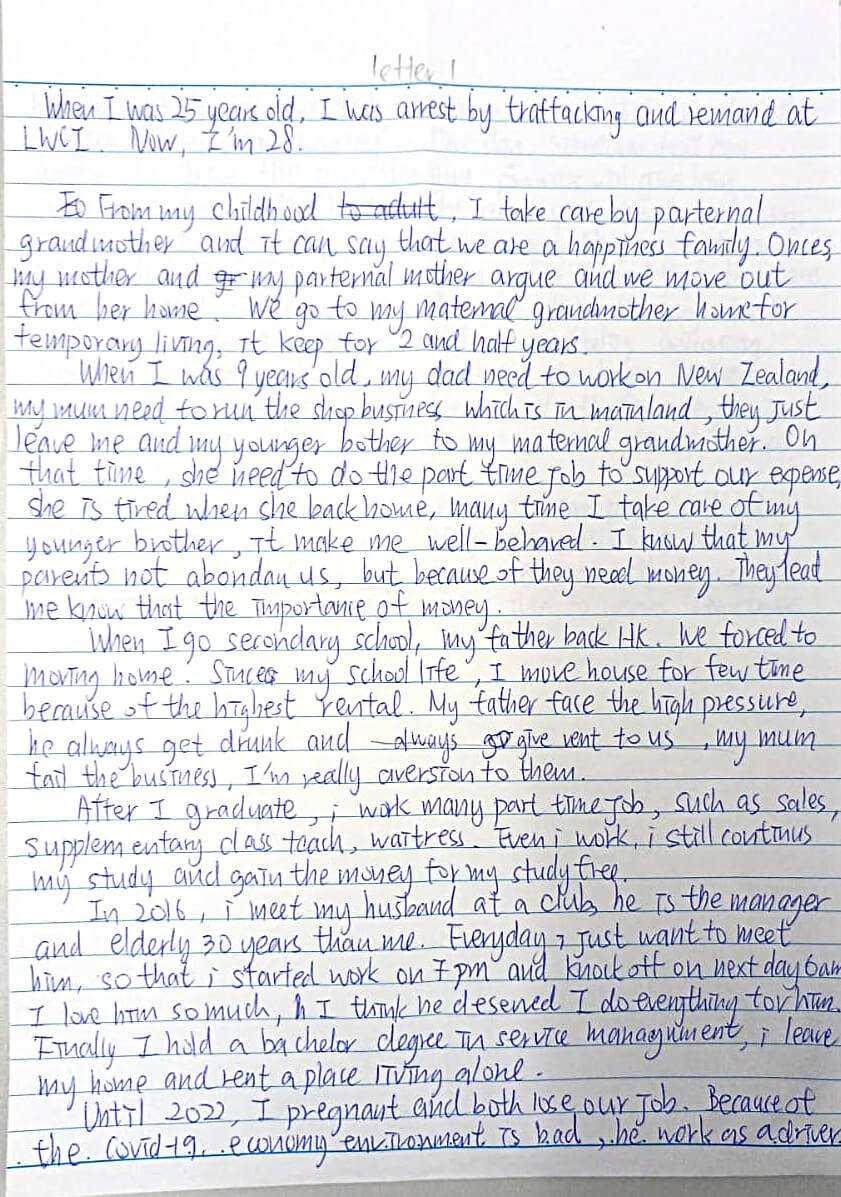 letter 1
When I was 25 years old, I was arrest by traffacking and remand at
LWCI. Now, I'm 28.
To From my childhood to adult, I take care by parternal
grandmother and it can say that we are a happiness family. Onces,
my mother and gr my parternal mother argue and we move out
from her home. We go to my maternal grandmother home for
temporary living, it keep for 2 and half years.
When I was 9 years old, my dad need to work on New Zealand,
my mum need to run the shop business which is in mainland, they just
leave me and my younger bother to my maternal grandmother. On
that time, she need to do the part time job to support our expense,
she is tired when she back home, many time I take care of my
younger brother, it make me well-behaved. I know that my
parents not abondan us, but because of they need money. They lead
me know that the importance of money.
When I go secondary school, my father back HK. We forced to
moving home. Sinces my school life, I move house for few time
because of the highest rental. My father face the high pressure,
he always get drunk and always go give vent to us, my mum
fail the business, I'm really aversion to them.
After I graduate, i work many part time job, such as sales,
supplementary class teach, waitress. Even i work, i still continus
my study and gain the money for my study free.
In 2016, i meet my husband at a club, he is the manager
and elderly 30 years than me. Everyday, just want to meet
him, so that i started work on 7pm and knock off on next day 6am
I love him so much, h I think he desened I do everything for him.
Finally I hold a bachelor degree in service managnment, i leave
my home and rent a place living alone.
Until 2022, I pregnant and both lose our job. Because of
the Covid-19, economy environment is bad, he work as a driver